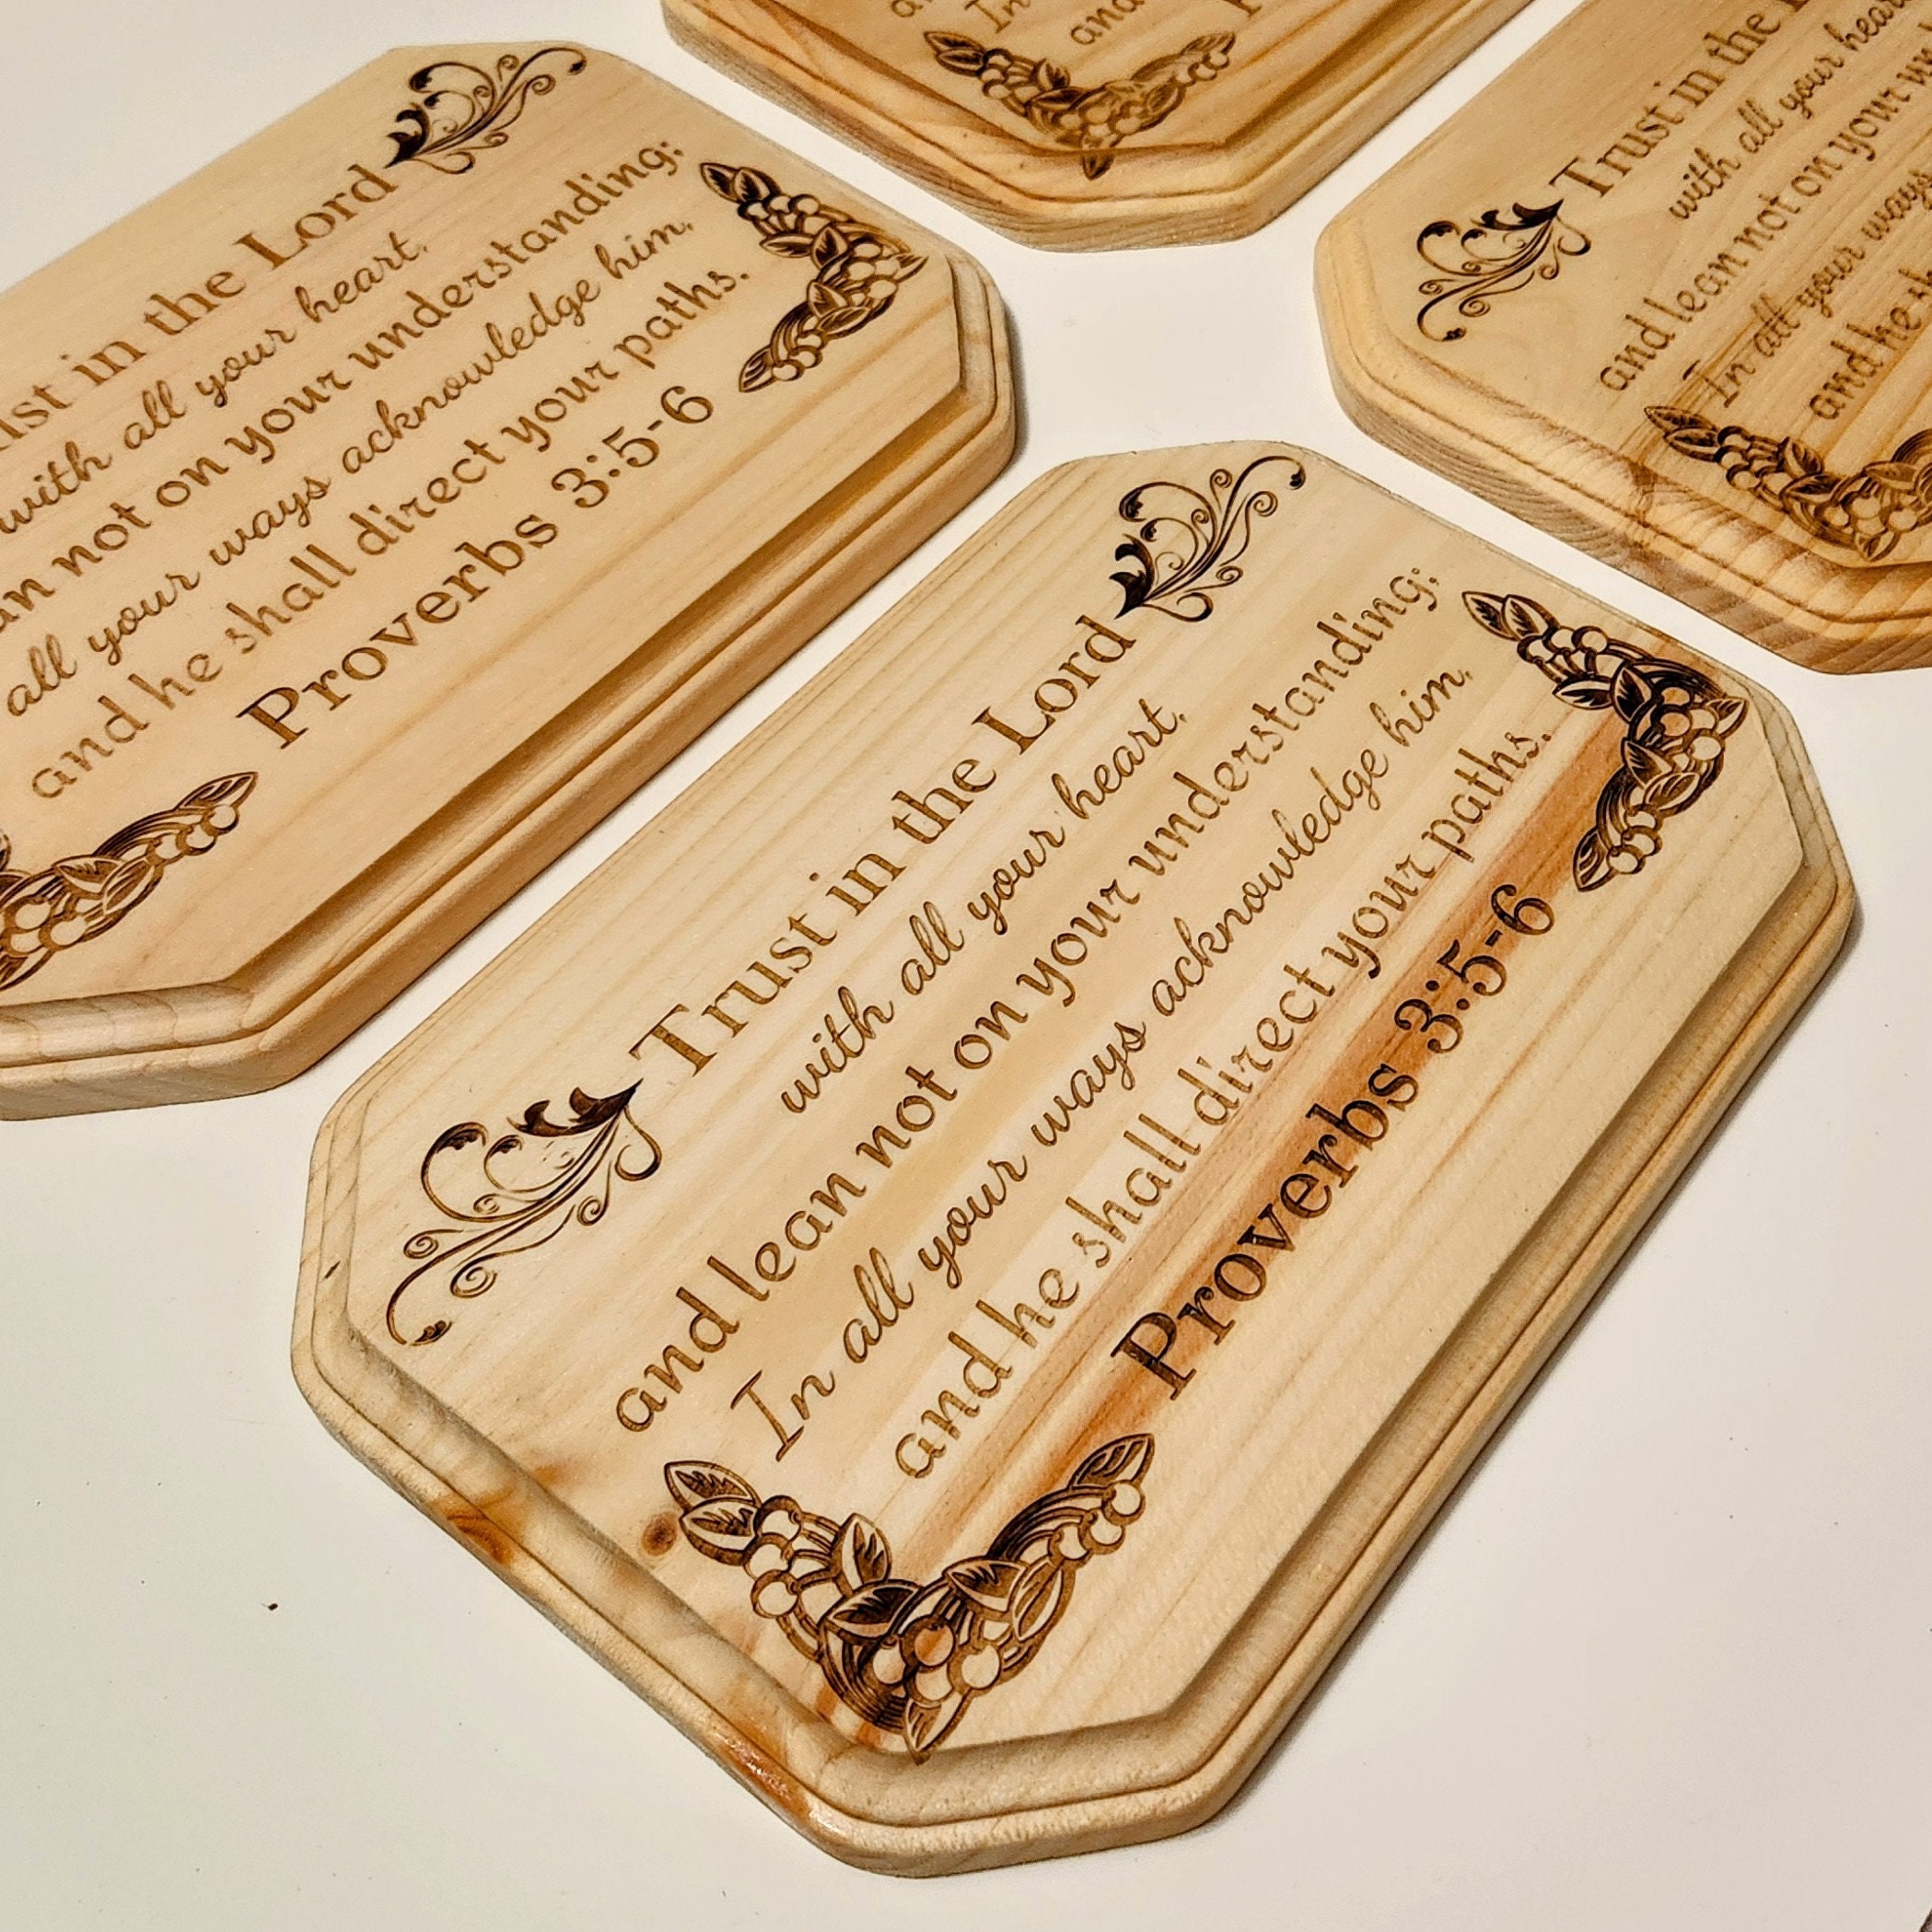 In
and
Trust in the
with all your heart
and lean not on your
In all your ways
and he
in the Lord
with all your heart,
not on your understanding:
all your ways acknowledge him,
and he shall direct your paths.
Proverbs 3:5-6
Trust in the Lord
with all your heart,
and lean not on your understanding;
In all your ways acknowledge him,
and he shall direct your paths.
Proverbs 3:5-6